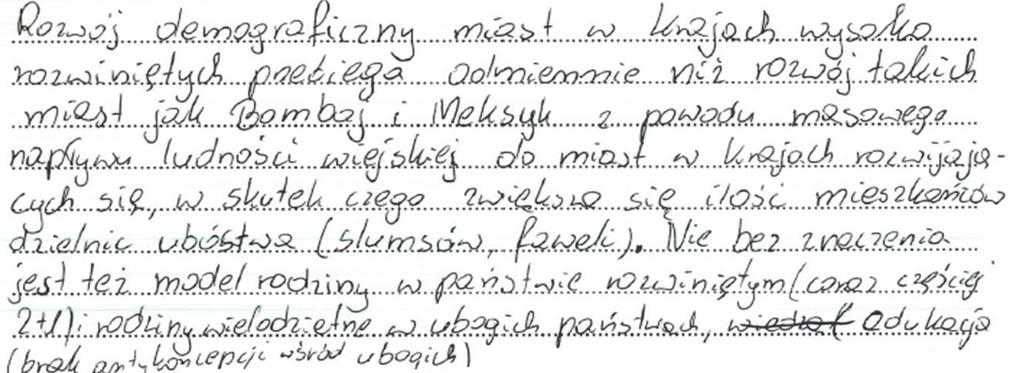 Rozwój demograficzny miast w krajach wysoko
rozwiniętych przebiega odmiennie niż rozwój takich
miast jak Bombaj i Meksyk z powodu masowego
napływu ludności wiejskiej do miast w krajach rozwijają-
cych się, w skutek czego zwiększa się ilość mieszkańców
dzielnic ubóstwa (slumsów, faweli). Nie bez znaczenia
jest też model rodziny w państwie rozwiniętym (coraz częściej
2+1) i rodziny wielodzietne w ubogich państwach, edukacja
(brak antykoncepcji wśród ubogich)